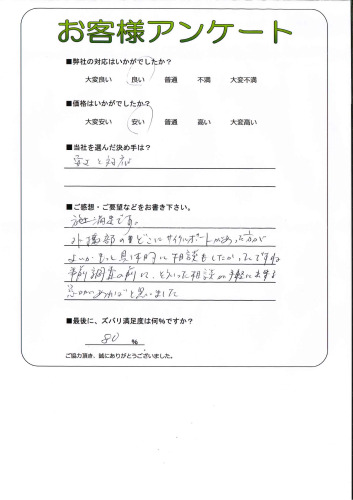 お客様アンケート
■弊社の対応はいかがでしたか?
大変良い 良い 普通 不満 大変不満
■価格はいかがでしたか?
大変安い 安い 普通 高い 大変高い
■当社を選んだ決め手は?
安さと対応
■ご感想・ご要望などをお書き下さい。
施工満足です。
外構部のどこにサイクルポートがあった方が
よいか もっと具体的に相談をしたかったですね
事前調査の前に、そういった相談が手軽に出来る
と思いました
■最後に、ズバリ満足度は何%ですか?
80 %
ご協力頂き、誠にありがとうございました。